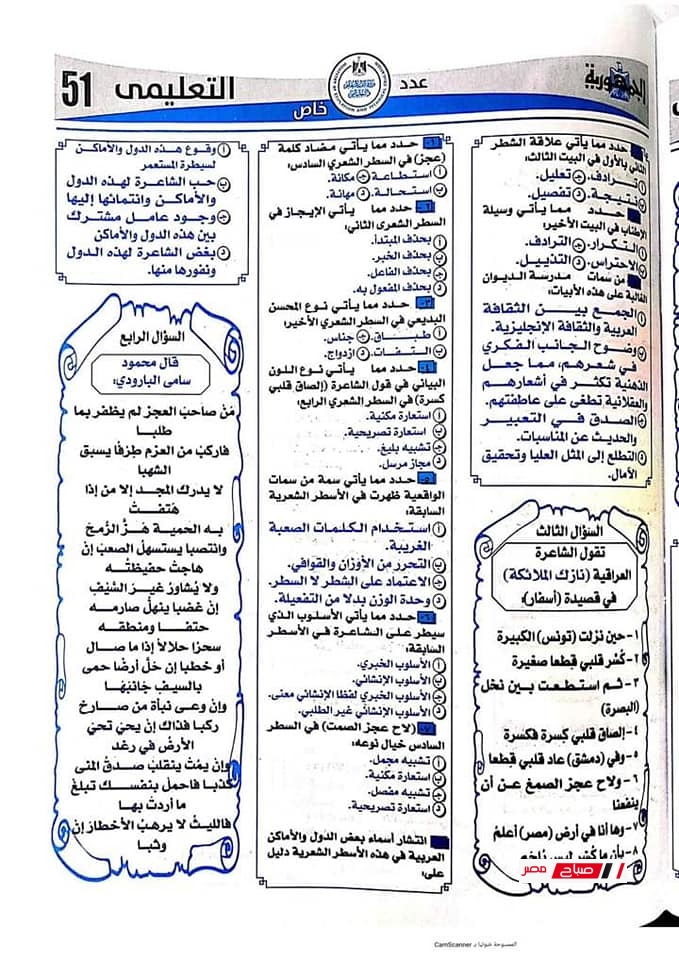 الجمهورية
عدد
خاص
التعليمى
51
حدد مما يأتي علاقة الشطر
الثاني بالأول في البيت الثالث:
أ ترادف. ج تعليل.
ب نتيجة. د تفصيل.
حدد مما يأتي وسيلة
الإطناب في البيت الأخير:
أ التكرار. ج الترادف.
ب الاحتراس. د التذييل.
من سمات مدرسة الديوان
الغالبة على هذه الأبيات:
أ الجمع بين الثقافة
العربية والثقافة الإنجليزية.
ب وضوح الجانب الفكري
في شعرهم، مما جعل
الذهنية تكثر في أشعارهم
والعقلانية تطغى على عاطفتهم.
ج الصدق في التعبير
والحديث عن المناسبات.
د التطلع إلى المثل العليا وتحقيق
الآمال.
السؤال الثالث
تقول الشاعرة
العراقية (نازك الملائكة)
في قصيدة (أسفار):
١- حين نزلت (تونس) الكبيرة
٢- كُسّر قلبي قطعا صغيرة
٣- ثم استطعت بين نخل
(البصرة)
٤- إلصاق قلبي كسرة فكسرة
٥- وفي (دمشق) عاد قلبي قطعا
٦- ولاح عجز الصمغ عن أن
ينفعنا
٧- وها أنا في أرض (مصر) أعلمُ
٨- بأن ما كُسّر ليس يُلحم
١- حدد مما يأتي مضاد كلمة
(عجز) في السطر الشعري السادس:
أ استطاعة ج مكانة.
ب استحالة. د مهانة.
٢- حدد مما يأتي الإيجاز في
السطر الشعرى الثاني:
أ بحذف المبتدأ.
ب بحذف الخبر.
ج بحذف الفاعل.
د بحذف المفعول به.
٣- حدد مما يأتي نوع المحسن
البديعي في السطر الشعري الأخير:
أ طباق. ج جناس.
ب التفات. د ازدواج.
٤- حدد مما يأتي نوع اللون
البياني في قول الشاعرة (إلصاق قلبي
كسرة) في السطر الشعري الرابع:
أ استعارة مكنية.
ب استعارة تصريحية.
ج تشبيه بليغ.
د مجاز مرسل.
٥- حدد مما يأتي سمة من سمات
الواقعية ظهرت في الأسطر الشعرية
السابقة:
أ استخدام الكلمات الصعبة
الغريبة.
ب التحرر من الأوزان والقوافي.
ج الاعتماد على الشطر لا السطر.
د وحدة الوزن بدلا من التفعيلة.
٦- حدد مما يأتي الأسلوب الذي
سيطر على الشاعرة في الأسطر
السابقة:
أ الأسلوب الخبري.
ب الأسلوب الإنشائي.
ج الأسلوب الخبري لفظا الإنشائي معنى.
د الأسلوب الإنشائي غير الطلبي.
٧- (لاح عجز الصمت) في السطر
السادس خيال نوعه:
أ تشبيه مجمل.
ب استعارة مكنية.
ج تشبيه مفصل.
د استعارة تصريحية.
انتشار أسماء بعض الدول والأماكن
العربية في هذه الأسطر الشعرية دليل
على:
أ وقوع هذه الدول والأماكن
لسيطرة المستعمر
ب حب الشاعرة لهذه الدول
والأماكن وانتمائها إليها
ج وجود عامل مشترك
بين هذه الدول والأماكن
د بغض الشاعرة لهذه الدول
ونفورها منها.
السؤال الرابع
قال محمود
سامى البارودي:
مَنْ صاحبَ العجز لم يظفر بما
طلبا
فاركبْ من العزم طِرفًا يسبق
الشهبا
لا يدرك المجد إلا من إذا
هتفتْ
به الحمية هزَّ الرُّمحَ
وانتصبا يستسهلُ الصعبَ إنْ
هاجتْ حفيظتُه
ولا يُشاورُ غيرَ السَّيْف
إنْ غضبا ينهلُّ صارمه
حتفا ومنطقه
سحرا حلالاً إذا ما صال
أو خطبا إن حَلَّ أرضًا حمى
بالسيف جَانبَها
وإن وعى نبأة من صارخ
ركبا فذاك إنْ يحىَ تحىَ
الأرضُ في رغد
وإن يمُتْ ينقلبْ صدقُ المنى
كذبا فاحملْ بنفسك تبلغْ
ما أردتَ بها
فالليثُ لا يرهبُ الأخطارَ إنْ
وثبا
صباح مصر
الممسوحة ضوئيا بـ CamScanner